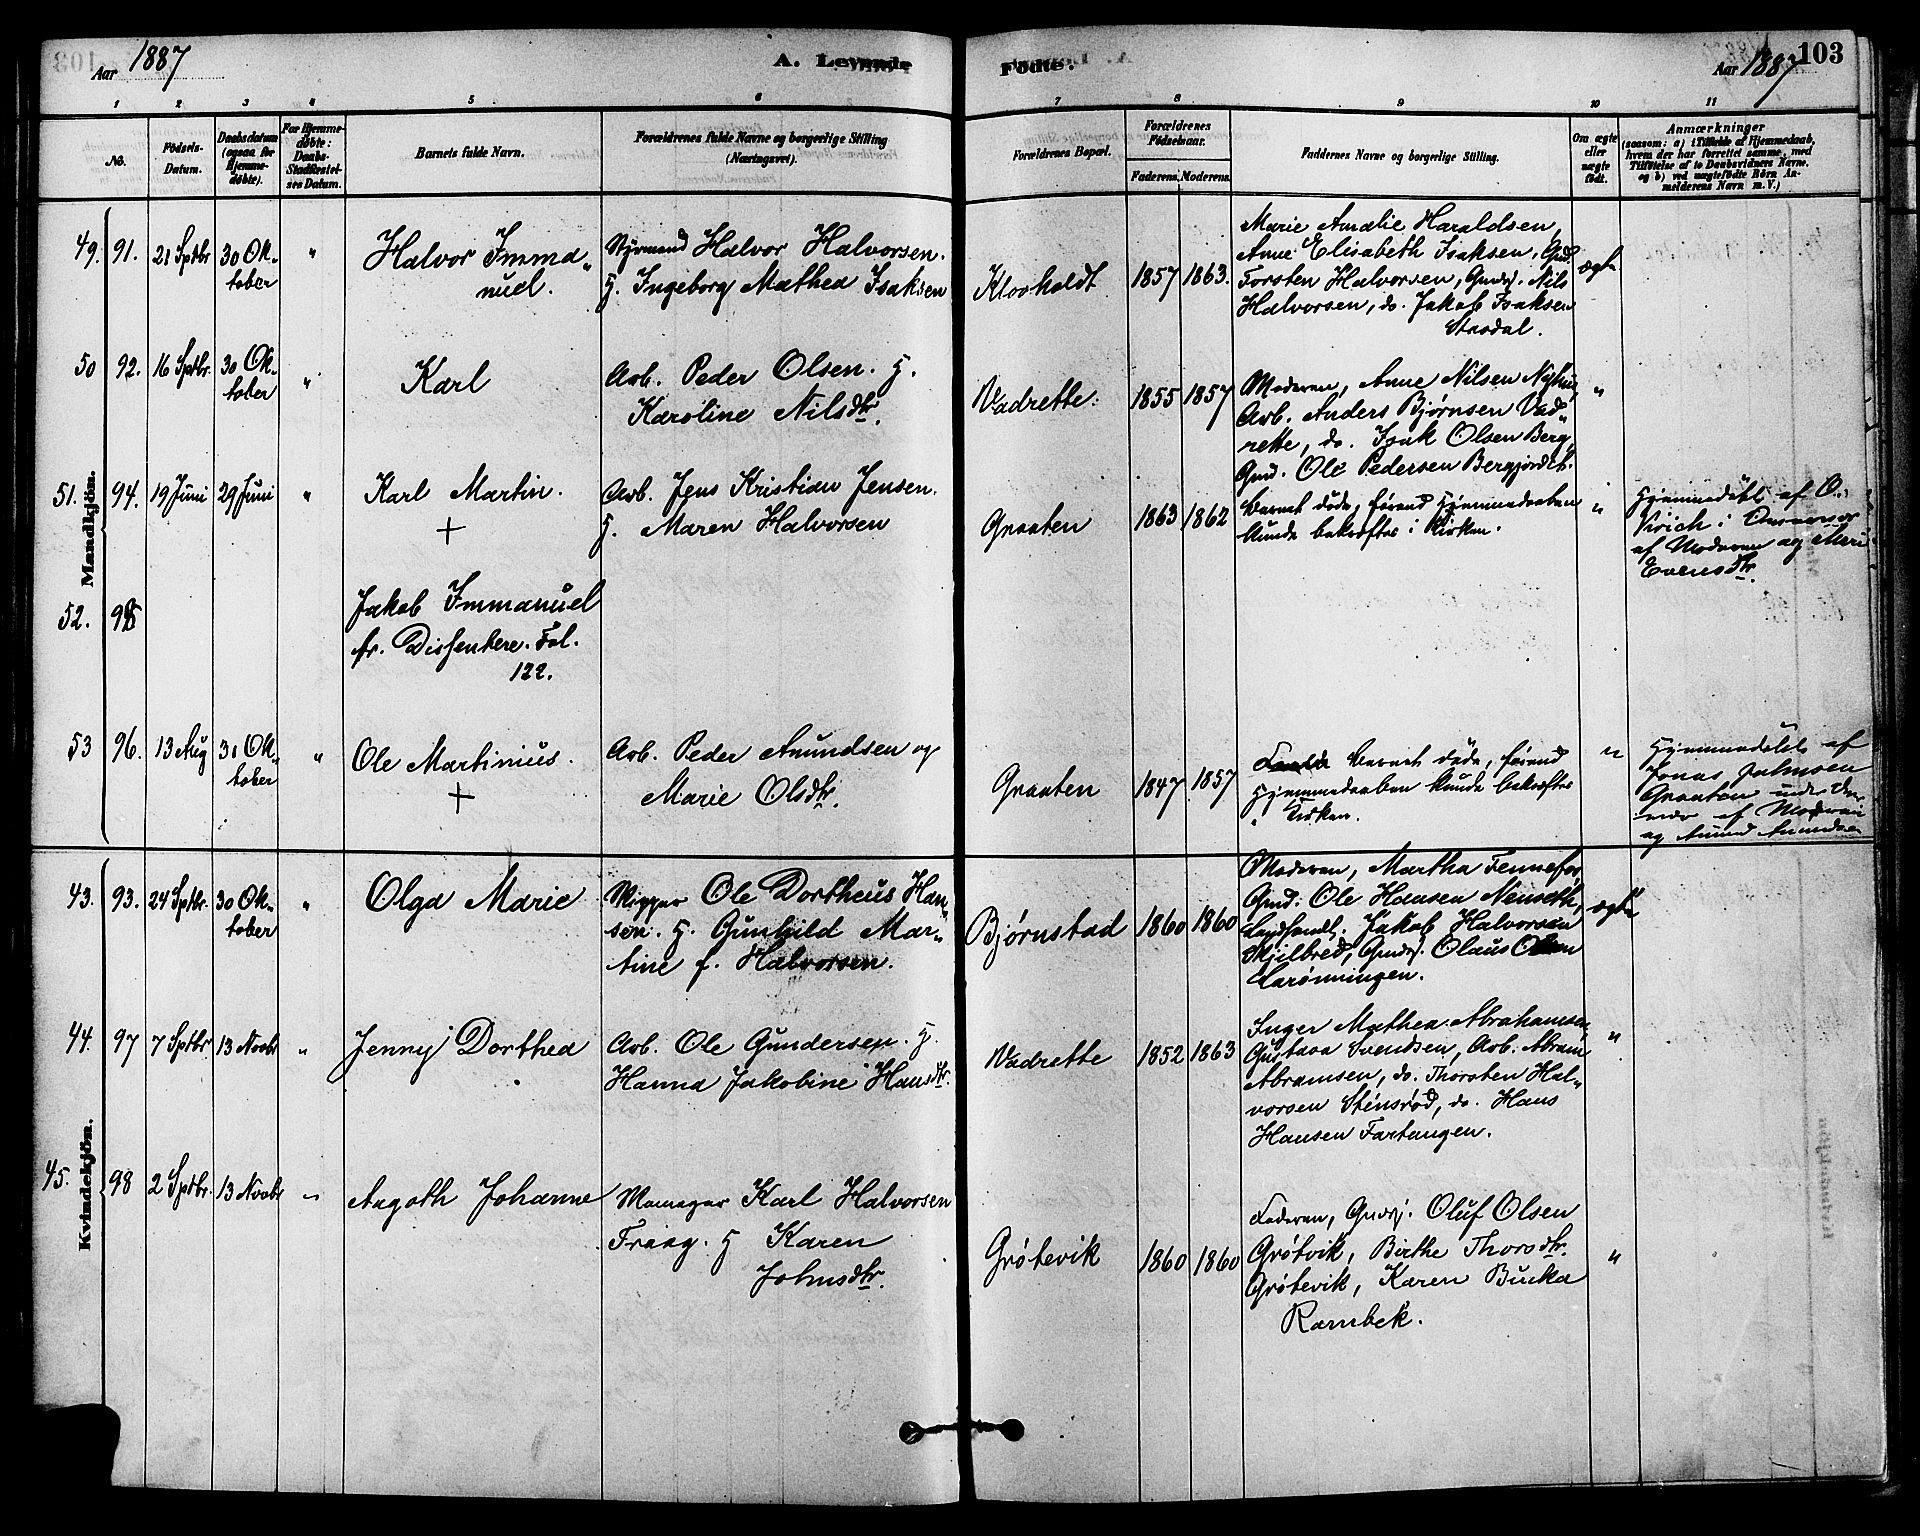 Aar 1887
A. Levende
Födte.
Aar 1887
103
1 2 3 4 5 6 7 8 9 10 11
No.
Födsels-
Datum.
Daabsdatum
(ogsaa for
Hjemme-
döbte).
For Hjemme-
döbte:
Daabs-
Stadfæstel-
ses Datum.
Barnets fulde Navn.
Forældrenes fulde Navne og borgerlige Stilling
(Næringsvei).
Forældrenes Bopæl.
Forældrenes
Födselsaar.
Faderens. Moderens.
Faddernes Navne og borgerlige Stilling.
Om ægte
eller
uægte
födt.
Anmærkninger
(saasom: a) i Tilfælde af Hjemmedaab,
hvem der har forrettet samme, med
Tilföielse af to Daabsvidners Navne,
og b) ved uægtefödte Börn An-
melderens Navn m. V.)
Mandkjön.
49. 91. 21 Sptbr 30 Ok-
tober
"
Halvor Imma-
nuel.
Styrmand Halvor Halvorsen.
H. Ingeborg Mathea Isaksen
Klovholdt 1857 1863.
Marie Amalie Haraldsen,
Anne Elisabeth Isaksen, Gmd.
Torsten Halvorsen, Gmdsj. Nils
Halvorsen, do. Jakob Isaksen
ægte
50 92. 16 Sptbr. 30 Ok-
tober
"
Karl
Arb. Peder Olsen. H.
Karoline Nilsdtr.
Vadrette. 1855 1857
Moderen, Anne Nilsen
Arb. Anders Bjørnsen Vad-
rette, do. Isak Olsen Berg,
Gmd. Ole Pedersen Bergjordet.
"
51. 94. 19 Juni 29 Juni "
Karl Martin.
+
Arb. Jens Kristian Jensen.
H. Maren Halvorsen
Graaten 1863 1862
Barnet døde, førend Hjemmedaaben
kunde bekræftes i Kirken.
"
Hjemmedøbt af O.
i
af Moderen og
Evensdtr.
52. 95
Jakob Immanuel
fr. Dissentere. Fol.
122.
53 96. 13 Aug 31 Ok-
tober
"
Ole Martinius.
+
Arb. Peder Amundsen og
Marie Olsdtr.
Graaten 1847 1857
Barnet døde, førend
Hjemmedaaben kunde bekræftes
i Kirken.
"
Hjemmedøbt af
Jonas
Graaten under
af Moderen
og Amund Amundsen
Kvindekjön.
43. 93. 24 Sptbr. 30 Ok-
tober
"
Olga Marie
Skipper Ole Dortheus Han-
sen. H. Gunhild Mar-
tine f. Halvorsen.
Bjørnstad 1860 1860
Moderen, Martha Tennefos,
Gmd. Ole Hansen Nenseth,
Jakob Halvorsen
Skjilbred, Gmdsj. Olaus Olsen
Larønningen.
ægte
44. 97 7 Sptbr 13 Novbr "
Jenny Dorthea
Arb. Ole Gundersen. H.
Hanna Jakobine Hansdtr.
Vadrette 1852 1863
Inger Mathea Abrahamsen,
Gustava Svendsen, Arb. Abram
Abramsen, do. Thorsten Hal-
vorsen Stensrød, do. Hans
Hansen Fartangen.
"
45. 98 2 Sptbr. 13 Novbr "
Aagoth Johanne
Karl Halvorsen
Traag. H Karen
Johnsdtr.
Grøtevik 1860 1860
Faderen, Gmdsj. Oluf Olsen
Grøtvik, Birthe Thorsdtr.
Grøtevik, Karen Bucka
Rambek.
"